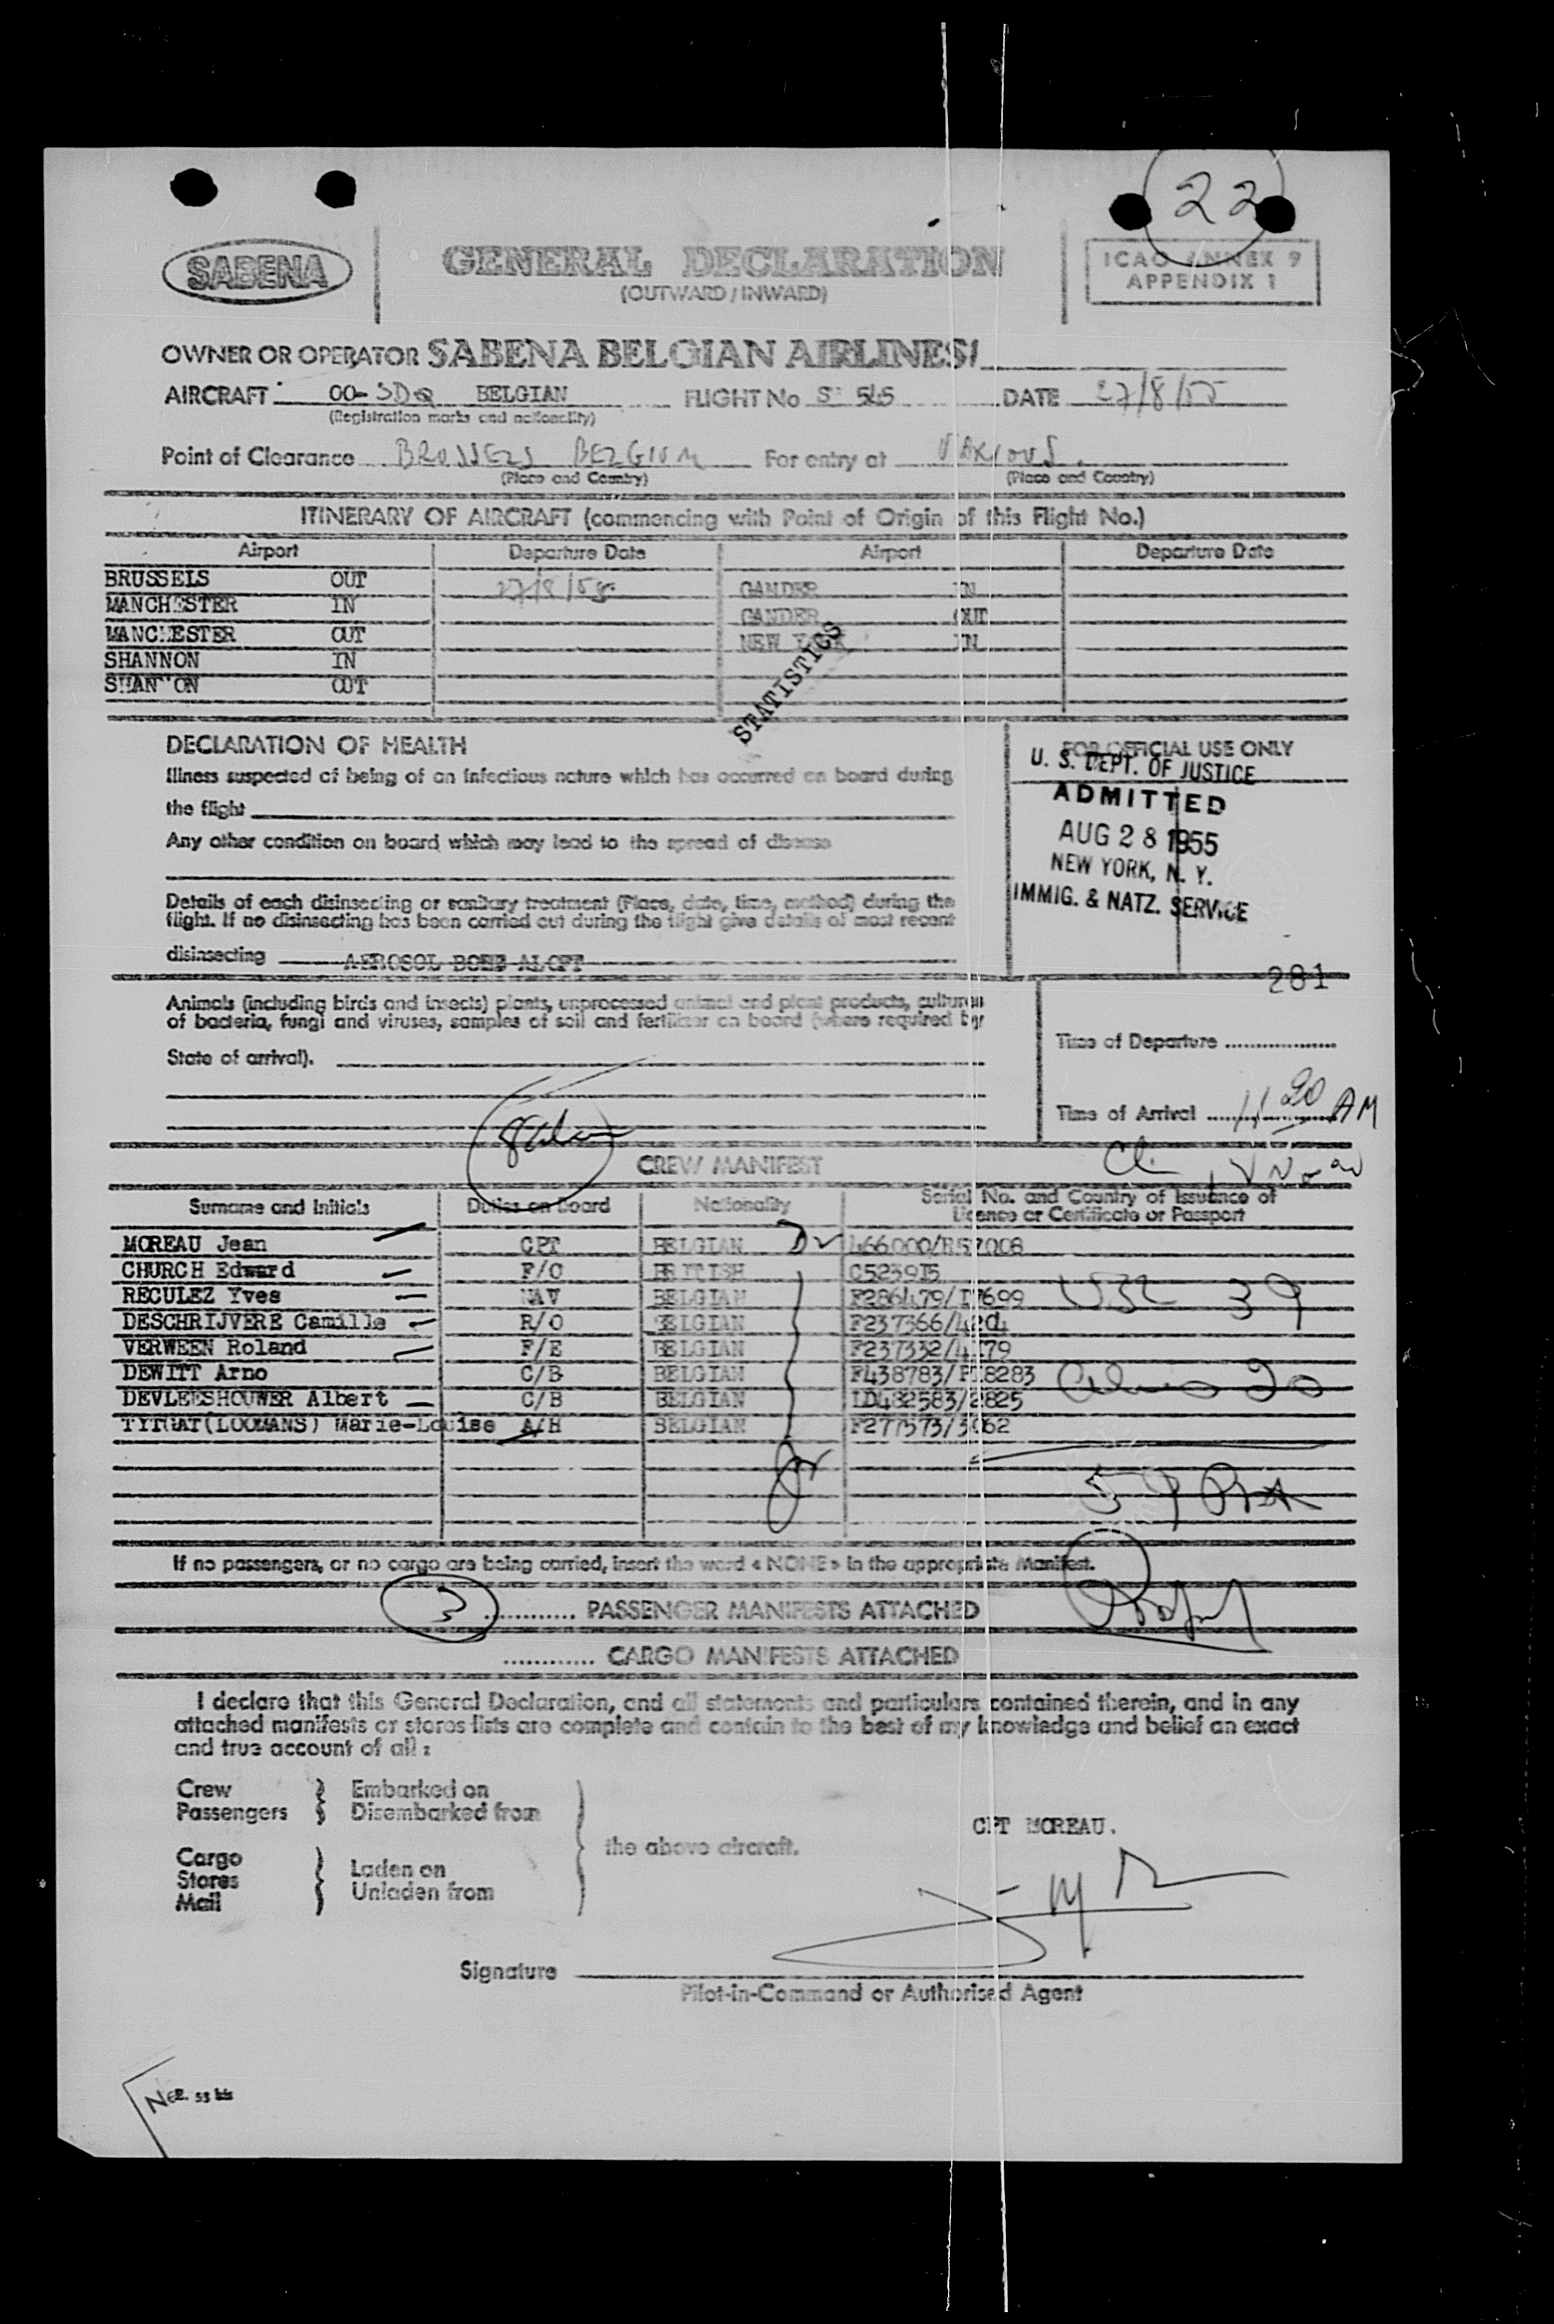 22
SABENA
GENERAL DECLARATION
(OUTWARD / INWARD)
ICAO ANNEX 9
APPENDIX 1
OWNER OR OPERATOR SABENA BELGIAN AIRLINES
AIRCRAFT OO-SDQ BELGIAN FLIGHT No S 545 DATE 27/8/55
(Registration marks and nationality)
Point of Clearance BRUSSELS BELGIUM For entry at VARIOUS.
(Place and Country) (Place and Country)
ITINERARY OF AIRCRAFT (commencing with Point of Origin of this Flight No.)
Airport Departure Date Airport Departure Date
BRUSSELS OUT 27/8/55 GANDER IN
MANCHESTER IN GANDER OUT
MANCHESTER OUT NEW YORK IN
SHANNON IN
SHANNON OUT
STATISTICS
DECLARATION OF HEALTH
Illness suspected of being of an infectious nature which has occurred on board during
the flight
Any other condition on board which may lead to the spread of disease
Details of each disinsecting or sanitary treatment (Place, date, time, method) during the
flight. If no disinsecting has been carried out during the flight give details of most recent
disinsecting AEROSOL BOMB ALOFT
FOR OFFICIAL USE ONLY
U. S. DEPT. OF JUSTICE
ADMITTED
AUG 28 1955
NEW YORK, N. Y.
IMMIG. & NATZ. SERVICE
281
Animals (including birds and insects) plants, unprocessed animal and plant products, cultures
of bacteria, fungi and viruses, samples of soil and fertilizer on board (where required by
State of arrival).
Time of Departure
Time of Arrival 11 20 AM
CREW MANIFEST
Surname and Initials Duties on Board Nationality Serial No. and Country of Issuance of
Licence or Certificate or Passport
MOREAU Jean CPT BELGIAN
CHURCH Edward F/O BRITISH
RECULEZ Yves NAV BELGIAN
DESCHRIJVERE Camille R/O BELGIAN
VERWEEN Roland F/E BELGIAN
DEWITT Arno C/B BELGIAN
DEVLEESHOUWER Albert C/B BELGIAN
TITGAT(LOOMANS) Marie-Louise A/H BELGIAN
39
20
59
If no passengers, or no cargo are being carried, insert the word « NONE » in the appropriate Manifest.
3 PASSENGER MANIFESTS ATTACHED
CARGO MANIFESTS ATTACHED
I declare that this General Declaration, and all statements and particulars contained therein, and in any
attached manifests or stores lists are complete and contain to the best of my knowledge and belief an exact
and true account of all :
Crew Embarked on
Passengers Disembarked from
the above aircraft.
Cargo
Stores Laden on
Mail Unladen from
CPT MOREAU.
Signature
Pilot-in-Command or Authorised Agent